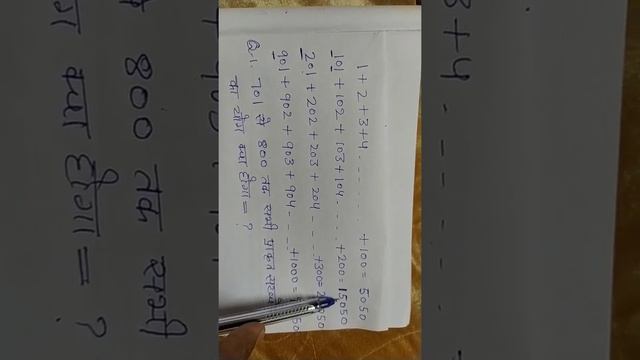 1 + 2 + 3 + 4 ........ + 100 = 5050
101 + 102 + 103 + 104 ..... + 200 = 15050
201 + 202 + 203 + 204 ..... + 300 = 050
901 + 902 + 903 + 904 ..... + 1000 = 050
Q.1. 701 से 800 तक सभी प्राकृत
का योग क्या होगा = ?